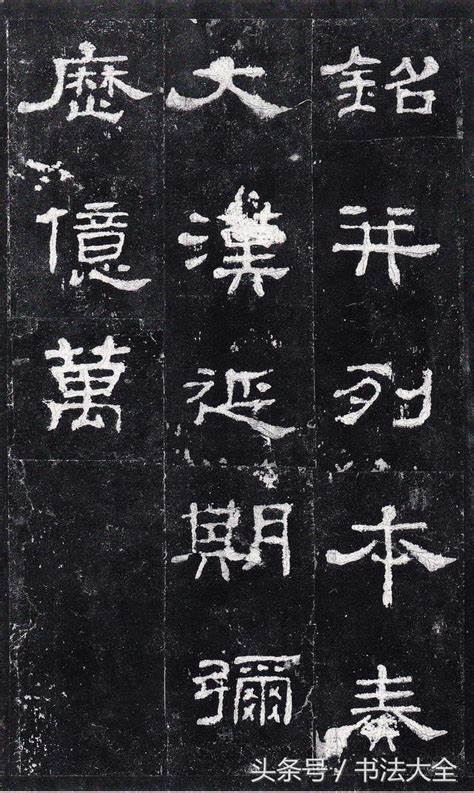 銘并列本奏
大漢延期彌
歷億萬
头条号/书法大全